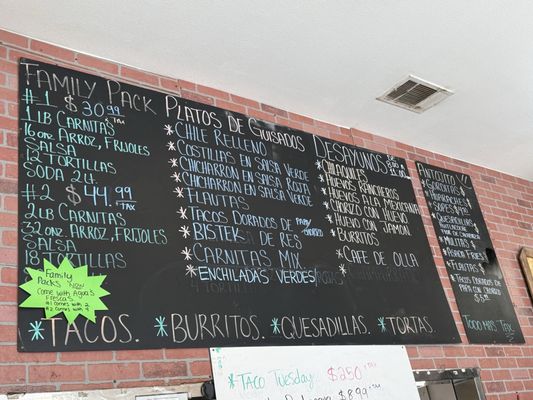 Family Pack
#1 $30.99 + TAX
1 LB CARNITAS
16 onz. ARROZ, FRIJOLES
SALSA
12 TORTILLAS
SODA
#2 $44.99 TAX
2 LB CARNITAS
32 onz. ARROZ, FRIJOLES
SALSA
18
Family
Packs Now
Come with Aguas
Frescas
PLATOS DE GUISADOS
* CHILE RELLENO
* COSTILLAS EN SALSA VERDE
* CHICHARRON EN SALSA ROJA
* CHICHARRON EN SALSA VERDE
* FLAUTAS
* TACOS DORADOS DE PAPA
* BISTEK DE RES
* CARNITAS MIX
* ENCHILADAS VERDES/ROJAS
DESAYUNOS
* CHILAQUILES
* HUEVOS RANCHEROS
* HUEVOS ALA MEXICANA
* CHORIZO CON HUEVO
* HUEVO CON JAMON
* BURRITOS
* CAFE DE OLLA
* GORDITAS
* HUARACHES
* SOPES
* QUESADILLAS
* MULITAS
* ASADA FRIES
* FLAUTAS
* TACOS DORADOS
DE PAPA
TODO MAS TAX
* TACOS. * BURRITOS. * QUESADILLAS. * TORTAS.
* TACO TUESDAY $2.50 + TAX
$8.99 + TAX